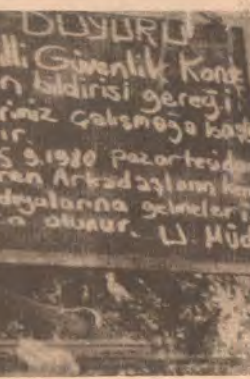 DUYURU
lli Güvenlik Kons
n bildirisi gereği
rimiz Çalışmağa başl
ır.
5.9.1980 Pazartesid
ren Arkadaşların
gelmeler
n olunur. W. Müd